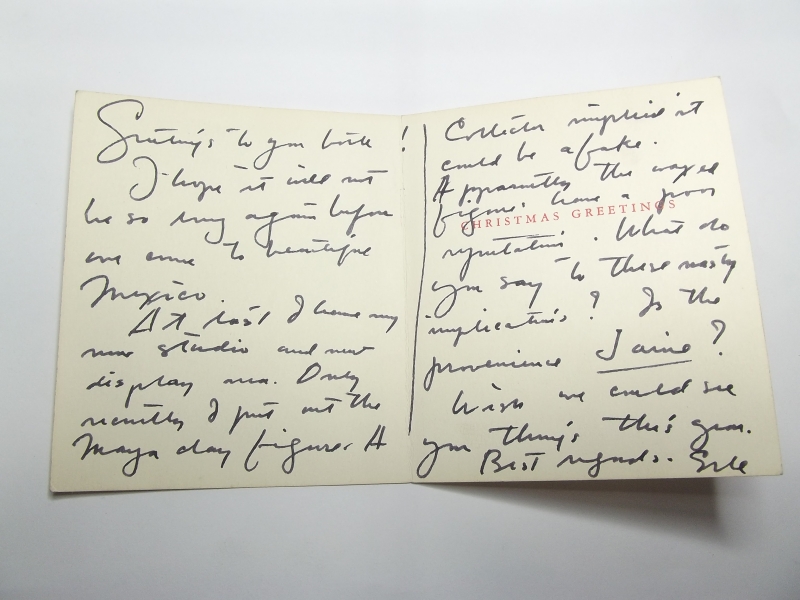 Greetings to you both!
I hope it will not
be so long again before
we come to beautiful
Mexico.
At last I have my
new studio and new
display area. Only
recently I put out the
Maya clay figure. A
Collector implied it
could be a fake.
Apparently the waxed
figures have a poor
CHRISTMAS GREETINGS
reputation. What do
you say to these nasty
implications? Is the
provenience Jaina?
Wish we could see
you things this year.
Best regards.